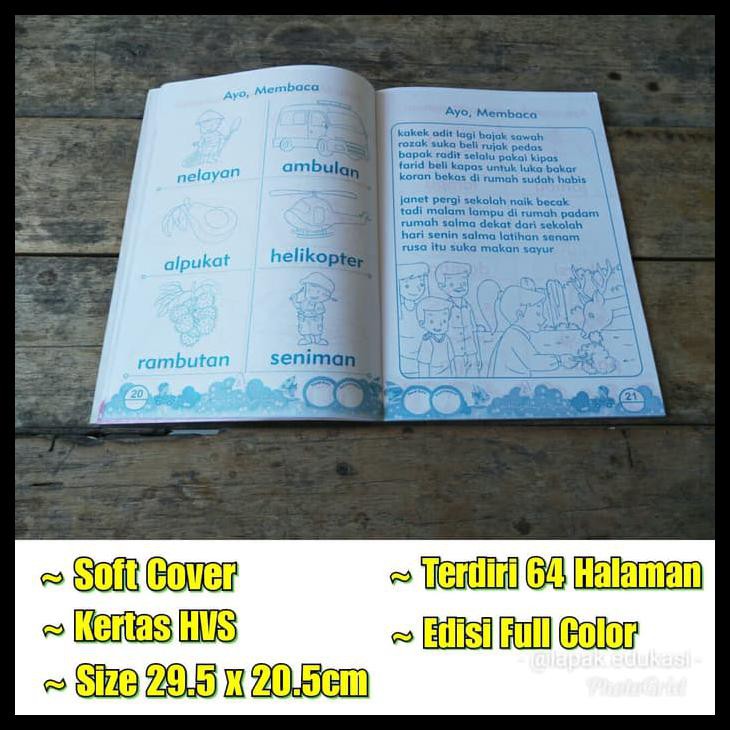 Ayo, Membaca
nelayan
ambulan
alpukat
helikopter
rambutan
seniman
20
Ayo, Membaca
kakek adit lagi bajak sawah
rozak suka beli rujak pedas
bapak radit selalu pakai kipas
farid beli kapas untuk luka bakar
koran bekas di rumah sudah habis
janet pergi sekolah naik becak
tadi malam lampu di rumah padam
rumah salma dekat dari sekolah
hari senin salma latihan senam
rusa itu suka makan sayur
21
~ Soft Cover
~ Kertas HVS
~ Size 29.5 x 20.5cm
~ Terdiri 64 Halaman
~ Edisi Full Color
- @lapak.edukasi -
PhotoGrid